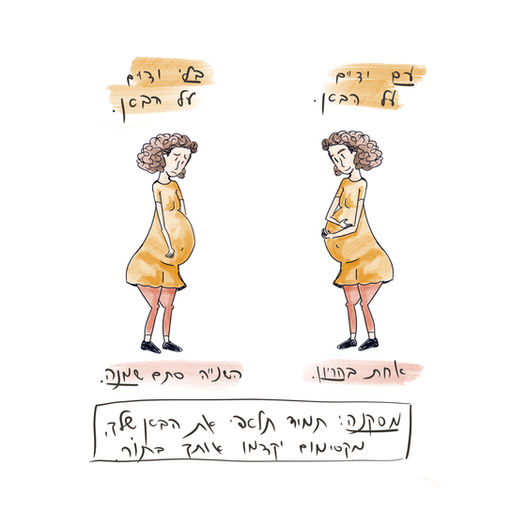 עם ידיים
על הבטן.
בלי ידיים
על הבטן.
אחת בהריון.
השנייה סתם שמנה.
מסקנה: תמיד תלטפי את הבטן שלך,
מקסימום יקדמו אותך בתור.